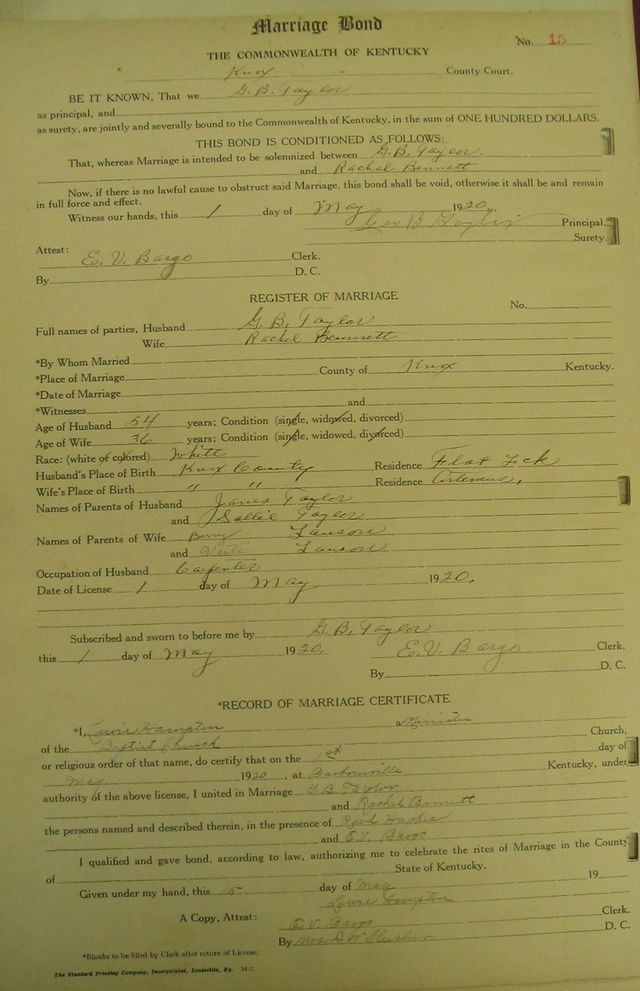 Marriage Bond
No. 15
THE COMMONWEALTH OF KENTUCKY
Knox County Court.
BE IT KNOWN, That we G. B. Taylor
as principal, and
as surety, are jointly and severally bound to the Commonwealth of Kentucky, in the sum of ONE HUNDRED DOLLARS.
THIS BOND IS CONDITIONED AS FOLLOWS:
That, whereas Marriage is intended to be solemnized between G. B. Taylor.
and Rachel Bennett
Now, if there is no lawful cause to obstruct said Marriage, this bond shall be void, otherwise it shall be and remain
in full force and effect.
Witness our hands, this 1 day of May 1920.
Principal.
Surety.
Attest:
E. V. Bargo Clerk.
By D. C.
REGISTER OF MARRIAGE
No.
Full names of parties, Husband G. B. Taylor
Wife Rachel Bennett
*By Whom Married
*Place of Marriage County of Knox Kentucky.
*Date of Marriage
*Witnesses and
Age of Husband 54 years; Condition (single, widowed, divorced)
Age of Wife 36 years; Condition (single, widowed, divorced)
Race: (white or colored) White
Husband's Place of Birth Knox County Residence Flat Lick
Wife's Place of Birth " " Residence Artemus.
Names of Parents of Husband James Taylor
and Sallie Taylor
Names of Parents of Wife Berry Lawson
and Lawson
Occupation of Husband Carpenter
Date of License 1 day of May 1920.
Subscribed and sworn to before me by G. B. Taylor
this 1 day of May 1920. E. V. Bargo Clerk.
By D. C.
*RECORD OF MARRIAGE CERTIFICATE
*I, Lewis Hampton a Minister Church,
of the Baptist Church
or religious order of that name, do certify that on the 1st day of
May 1920, at Barbourville Kentucky, under
authority of the above license, I united in Marriage G B Taylor
and Rachel Bennett
the persons named and described therein, in the presence of Reid Hughes
and E. V. Bargo
I qualified and gave bond, according to law, authorizing me to celebrate the rites of Marriage in the County
of State of Kentucky.
Given under my hand, this 5 day of May 19
Lewis Hampton
A Copy, Attest: E. V. Bargo Clerk.
By Mrs D. W. D. C.
*Blanks to be filled by Clerk after return of License.
The Standard Printing Company, Incorporated, Louisville, Ky.